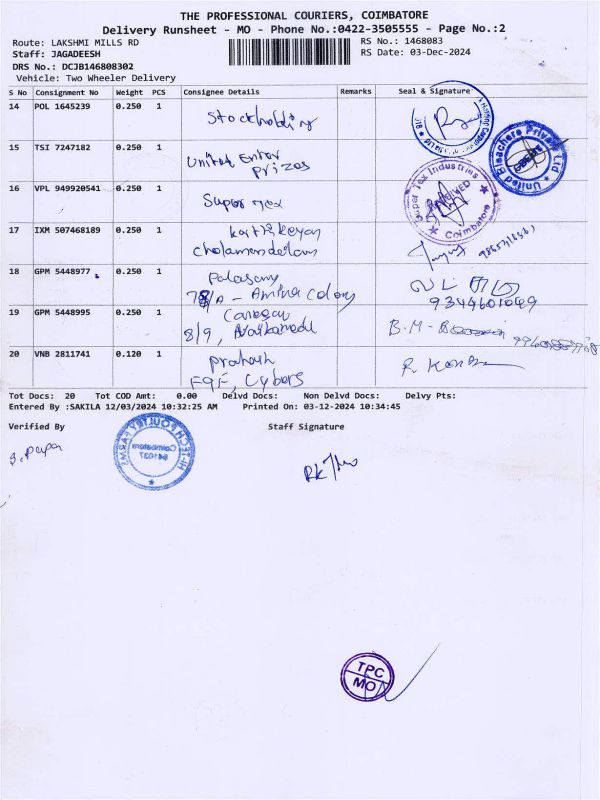 THE PROFESSIONAL COURIERS, COIMBATORE
Delivery Runsheet - MO - Phone No.:0422-3505555 - Page No.:2
Route: LAKSHMI MILLS RD
RS No.: 1468083
Staff: JAGADEESH
RS Date: 03-Dec-2024
DRS No.: DCJB146808302
Vehicle: Two Wheeler Delivery
S No Consignment No Weight PCS Consignee Details Remarks Seal & Signature
14 POL 1645239 0.250 1 Stockholding
15 TSI 7247182 0.250 1 United Enter
prizes
United Bleachers Private Ltd
16 VPL 949920541 0.250 1 Super Tex
Super Tex Industries
RECEIVED
Coimbatore
17 IXM 507468189 0.250 1 karthikeyan
cholamandalam
18 GPM 5448977 0.250 1
78/A - Amina Colony
9344601049
19 GPM 5448995 0.250 1
8/9,
B.M-
20 VNB 2811741 0.120 1 prakash
F9F, Cybers
R.
Tot Docs: 20 Tot COD Amt: 0.00 Delvd Docs: Non Delvd Docs: Delvy Pts:
Entered By :SAKILA 12/03/2024 10:32:25 AM Printed On: 03-12-2024 10:34:45
Verified By Staff Signature
Coimbatore
641037
TPC
MO